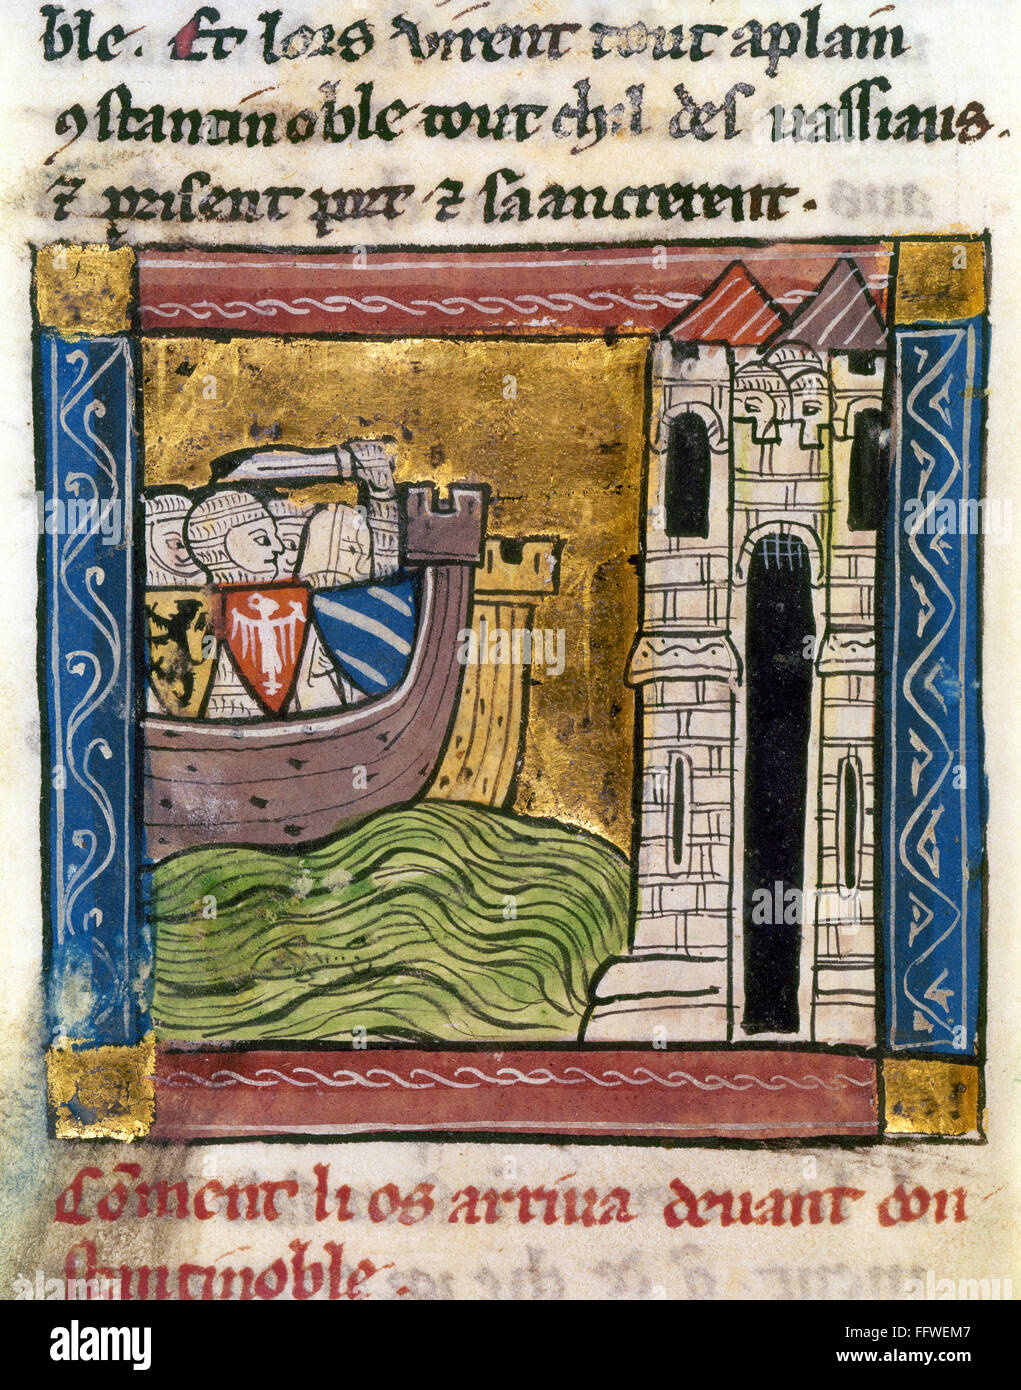 ble. Et lors virent tout a plain
ꝯstantinoble tout chil des uassiaus.
⁊ prisent port ⁊ sa ancrerent.
Cõment li os arriua deuant con
stantinoble.
alamy
alamy stock photo
FFWEM7
www.alamy.com